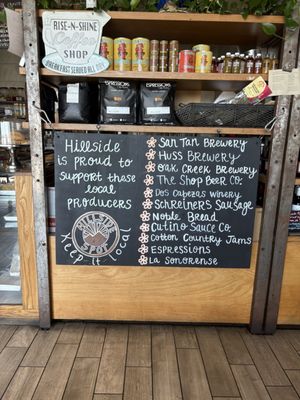 RISE-N-SHINE
SHOP
BREAKFAST SERVED ALL
Hillside
is proud to
support these
local
producers
HILLSIDE
SPOT
KEEP it LOCAL
San Tan Brewery
Huss Brewery
Oak Creek Brewery
The Shop Beer Co.
Dos Cabezas Winery
Schreiner's Sausage
Noble Bread
Cutino Sauce Co.
Cotton Country Jams
Espressions
La Sonorense